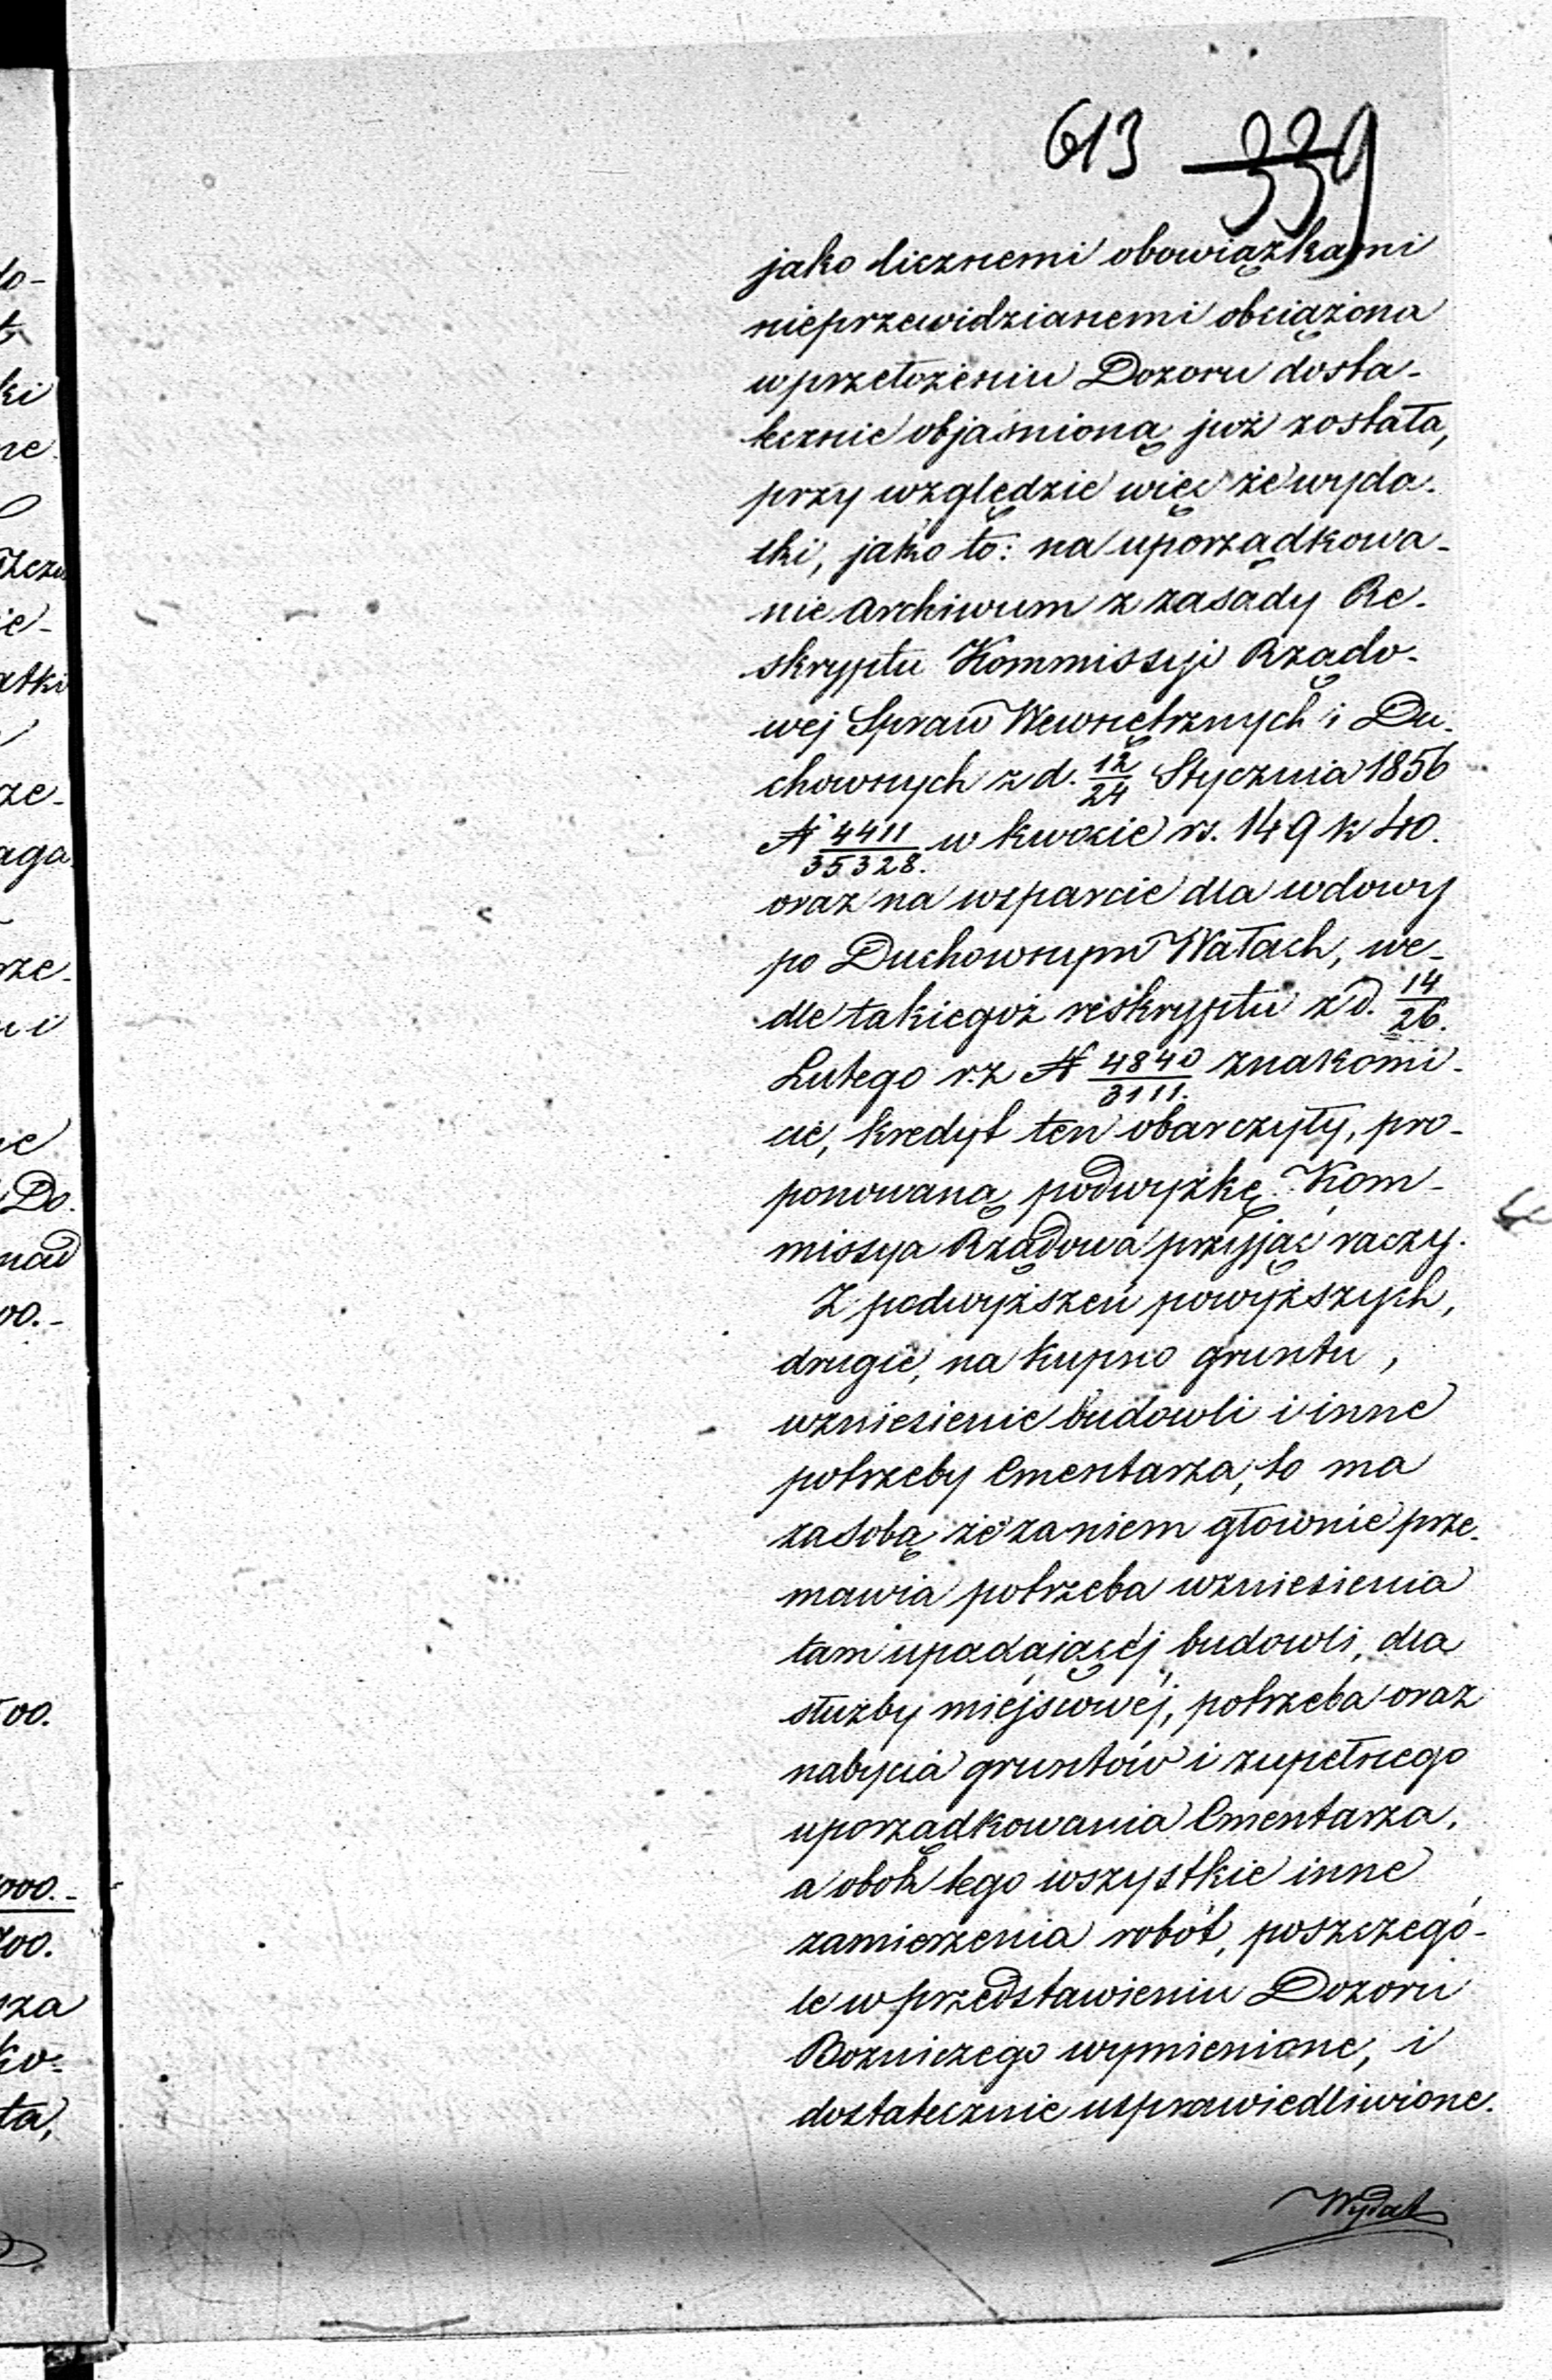 613 339
jako licznemi obowiązkami
nieprzewidzianemi obciążona
w przełożeniu Dozoru dosta-
tecznie objaśnioną już została,
przy względzie więc że wyda-
tki, jako to: na uporządkowa-
nie archiwum z zasady Re-
skryptu Kommissyi Rządo-
wej Spraw Wewnętrznych i Du-
chownych z d. 12/24 Stycznia 1856
N 4411/35328. w kwocie rs. 149 k 40.
oraz na wsparcie dla wdowy
po Duchownym Wałach, we-
dle takiegoż reskryptu z d. 14/26.
Lutego r.z N 4840/3111. znakomi-
cie, kredyt ten obarczyły, pro-
ponowaną podwyżkę Kom-
missya Rządowa przyjąć raczy.
Z podwyższeń powyższych,
drugie, na kupno gruntu,
wzniesienie budowli i inne
potrzeby Cmentarza, to ma
za sobą że za niem głownie prze-
mawia potrzeba wzniesienia
tam upadającej budowli, dla
służby miejscowej, potrzeba oraz
nabycia gruntów i zupełnego
uporządkowania Cmentarza,
a obok tego wszystkie inne
zamierzenia robót, poszczegó-
le w przedstawieniu Dozoru
Bozniczego wymienione, i
dostatecznie usprawiedliwione.
Wydat
do-
ki
ne.
ie-
atki
ze-
aga
rze-
ne
Do.
nad
00.-
500.
000.-
700.
sza
ko-
ta,